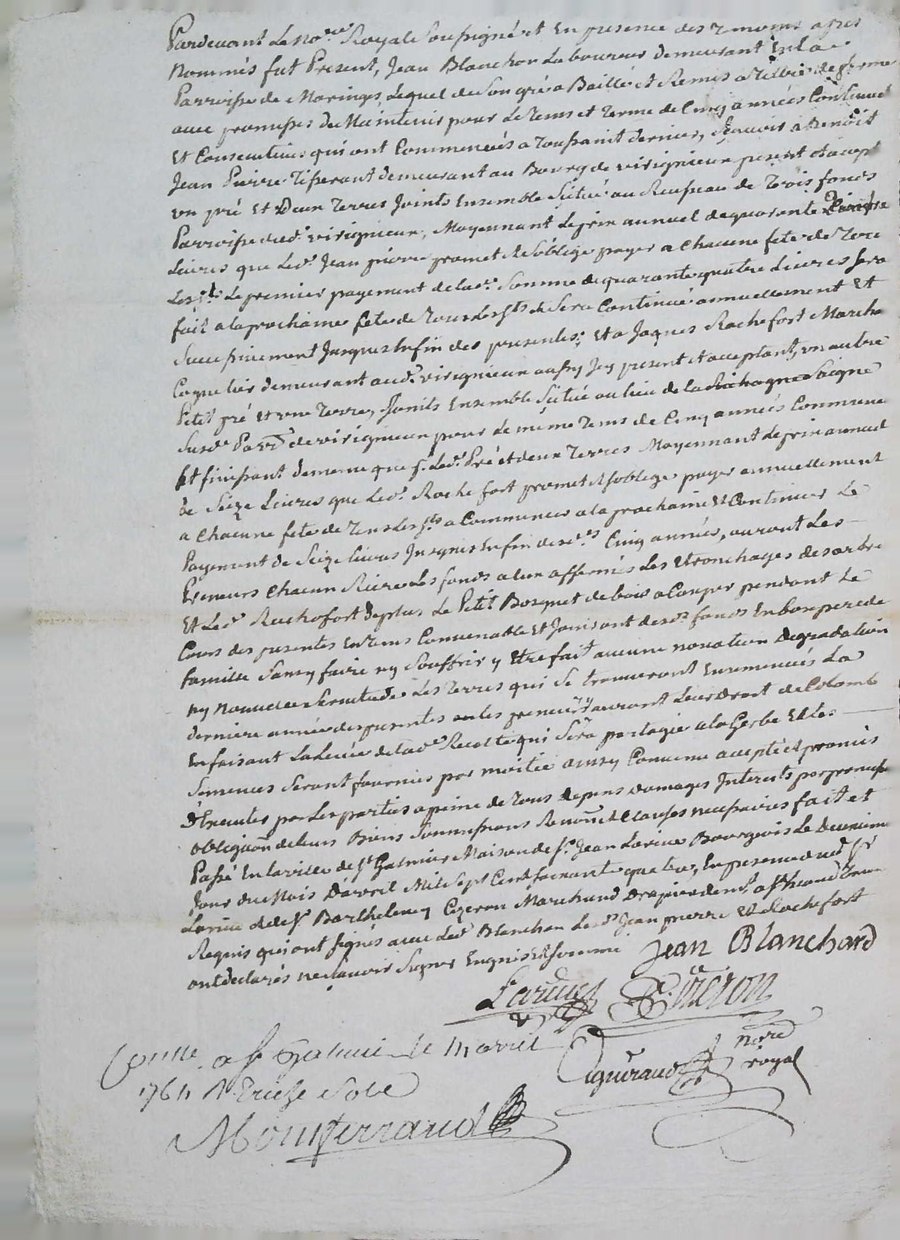 Pardevant Le No.re Royal Soussigné et En presence des Temoins apres
Nommés fut Present, Jean Blanchon Laboureur demeurant En La
Parroisse de Maringe Lequel de Son gré a Baillé et Remis a Titre de ferme
avec promesses de Maintenir pour Le Tems et Terme de Cinq années Continues
Et Consecutives qui ont Commencées a Toussaint dernier, Sçavoir a Benoît
Jean Pierre Tisserant demeurant au Bourg de virignieux present et accept
un pré Et Deux Terres Joints Ensemble Situé au de Trois fonds
Parroisse dud. virignieux, Moyennant Le prix annuel de quarante quatre
Livres que Led. Jean pierre promet et S'oblige payer a Chacune fête de Tous
Les S.ts Le premier payement de lad.e Somme de quarante quatre Livres Sera
fait a la prochaine fête de Tous Les S.ts & Sera Continué annuellement Et
Successivement Jusques En fin des presentes; Et a Jaques Rochefort Marcha
Coquetier demeurant aud. virignieux aussy Icy present et acceptant, un autre
Petit pré Et une Terre, Joints Ensemble Situé au lieu de la
Susd.e Parr.e de virignieux pour Le même Tems de Cinq années Commence
Et finissant de meme que Led. Pré et deux Terres Moyennant Le prix annuel
de Seize Livres que Led. Rochefort promet et S'oblige payer annuellement
a Chacune fête de Tous Les S.ts a Commencer a la prochaine Et Continuer Le
Payement de Seize Livres Jusques En fin desd.es Cinq années, auront Les
Preneurs Chacun Riere Les fonds a Eux affermés Les Etronchages des arbre
Et Led. Rochefort de plus Le Petit Bosquet de bois a Couper pendant Le
Cours des presentes En Tems Convenable Et Jouiront desd. fonds En bon pere de
famille Sans y faire ny Souffrir y Etre fait aucune novation degradation
ny nouvelle Servitude, Les Terres qui Se trouveront Enmencées La
derniere année des presentes Les preneurs auront Leur Droit de Colomb
En faisant La Levée de lad.e Recolte qui Sera partagée a la Gerbe Et Les
Semences Seront fournies par moitié aussy Convenu accepté et promis
d'Executer par Les parties a peine de Tous depens Damages Interets par promesse
obligaõn de leurs Biens Soumissions Renon.on et Clauses necessaires fait et
Passé En la ville de S.t Galmier Maison de S.r Jean Bourgois Le Deuxieme
Jour du Mois D'avril Mil Sept Cent Soixante quatre, En presence dud. S.r
et de S.r Barthelemy Marchand Drapier de
Requis qui ont Signés avec Led. Blanchon Led. Jean pierre Et Rochefort
ont declarés ne Sçavoir Signer Enquis Et Sommé
Jean Blanchard
nore
royal
a S.t Galmier Le avril
1764 R Treize Sols
Montferrand